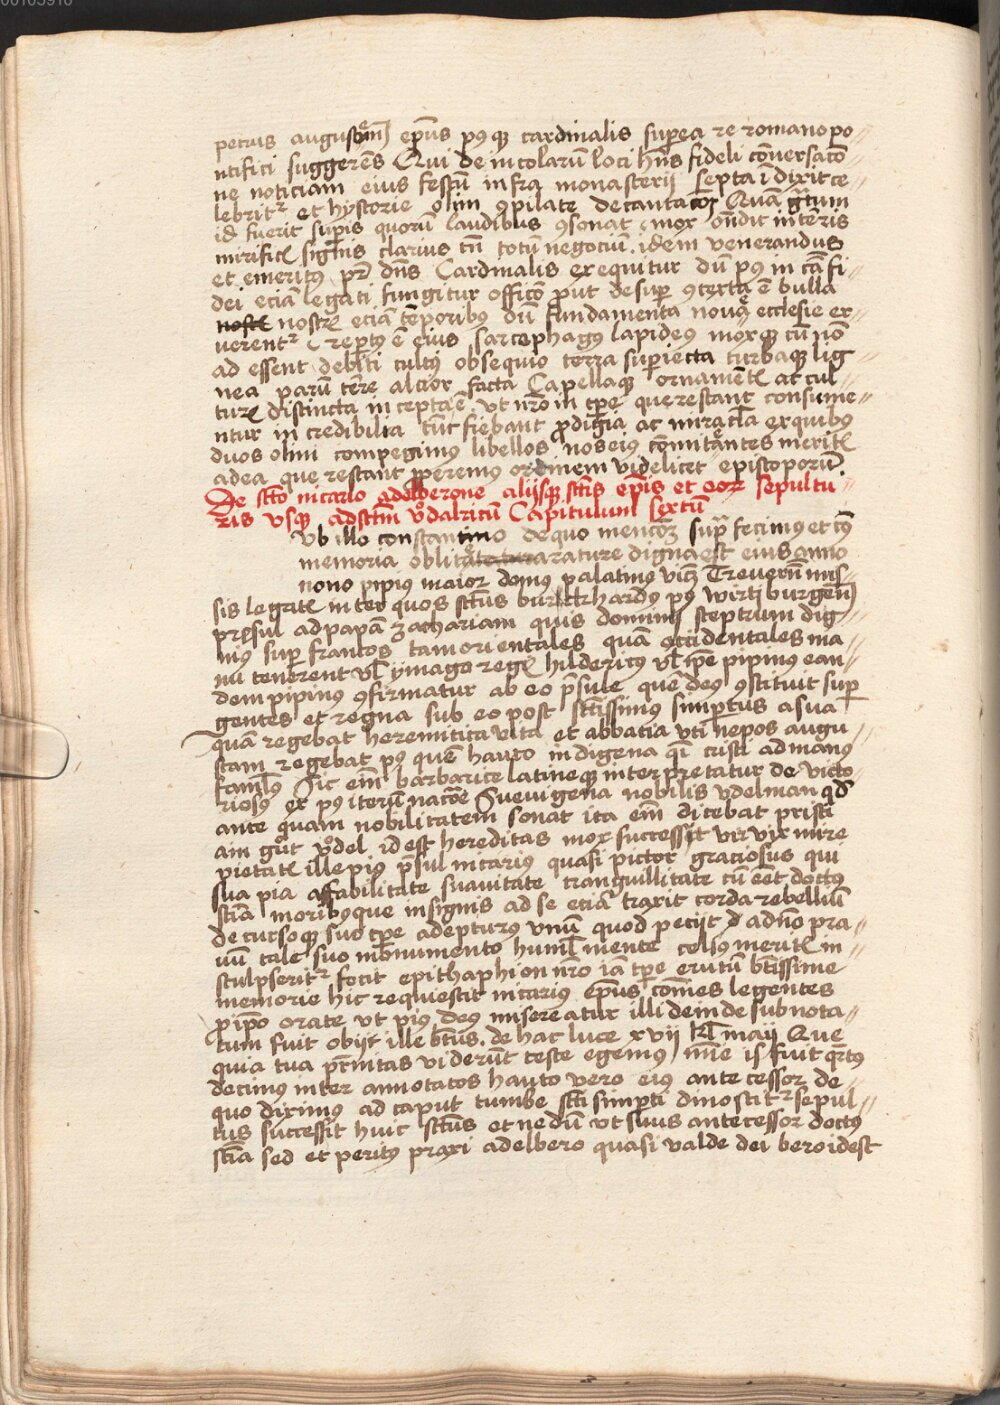 00105910
petrus augusten̄ ep̄us pꝰ qꝫ cardinalis super ea re romano po
ntifici suggerēs Qui de incolarū loci hm̄s fideli cōuersacō
ne noticiam eius festū infra monasterij septa īdixit ce
lebritᷣ et hystorie olim ꝯpilate decantacōꝫ Quā gᷓtum
id fuerit sup̄is quorū laudibus ꝯsonat mox on̄dit inteīris
mirificꝭ signis clarius tn̄ totū negociū idem venerandus
et emeritꝰ pr̄ dn̄s Cardinalis exequitur dū pꝰ in cā fi
dei eciā legati fungitur officō ꝓut desuper ꝯtexta ē bulla
nostrꝭ eciā tēporibus dū fundamenta nouę ecclesie ex
uerentᷣ repertꝰ ē eius sarcophagus lapideus moxqꝫ cū nō
ad essent debiti cultꝰ obsequio terra superiecta turbaqꝫ lig
nea parū terre alcior facta Capellaqꝫ ornamentꝭ ac cul
turꝭ distincta incepta ē vt nr̄o in tp̄e que restant consume
ntur incredibilia tūc fiebant ꝓdigia ac miracl̄a ex quibus
duos olim compegimus libellos nos eius cōmitantes meritꝭ
ad ea que restant ꝓperemus ordinem videlicet episcoporū
De sct̄o nicario adelberone alijsqꝫ sct̄is ep̄is et eoꝝ sepultu
ris vsqꝫ ad sct̄m vͦdalricū Capitulum sextū
Vb illo constantino de quo mencōꝫ supᷓ fecimus et cꝰ
memoria oblitᷓarature digna est eius anno
nono pipius maior domus palatinus vicꝫ Treuerū mis
sis legatꝭ inter quos sct̄us burkhardꝰ pꝰ wirtzburgen̄
presul ad papā zachariam quis dominij sceptrum dig
nius super francos tam orientales quā occidentales ma
nu tenerent vl̄ ymago regꝭ hildericus vl̄ ip̄e pipinus ean
dem pipinus ꝯfirmatur ab eo p̄sule quē deus ꝯstituit super
gentes et regna sub eo post sct̄issimus simpertus a sua
quā regebat heremitica vita et abbatia vti nepos augu
stam regebat pꝰ quē hauto indigena qͥ cristi ad manus
famlꝰ Sic em̄ barbarice latineqꝫ interpretatur de victo
riosus ex pꝰ iterū nacōe Sueuigena nobilis vdelman qd̄
ante quam nobilitatem sonat ita em̄ dicebat pristi
am gūt vͦdel id est hereditas mox successit vir vix mire
pietatꝭ ille pius p̄sul nicarius quasi pictor graciosus qui
sua pia affabilitate suauitate tranquillitate cū eēt doctꝰ
sciā moribusque insignis ad se eciā traxit corda rebelliū
de cursoqꝫ suo tp̄e adepturus vnū quod pecijt a dn̄o pra
uū tale suo monumento humil̄ mente celsus meritꝭ in
sculpseritᷣ fecit epithaphion nr̄o iā tp̄e erutū bt̄issime
memorie hic requiescit nicarius ep̄us cōmes legentes
ꝓ ip̄o orate vt pius deus misereatur illi deinde subnota
tum fuit obijt ille bt̄us de hac luce xvij kl̄ maij Que
quia tua prn̄itas viderūt teste egemus nīe is fuit qr̄tus
decimus inter annotatos hauto vero eius antecessor de
quo diximus ad caput tumbe sct̄i simp̄ti dinoscitᷣ sepul
tus successit huic sct̄us et nedū vt suus antecessor doctꝰ
sciā sed et peritus praxi adelbero quasi valde dei bero idest